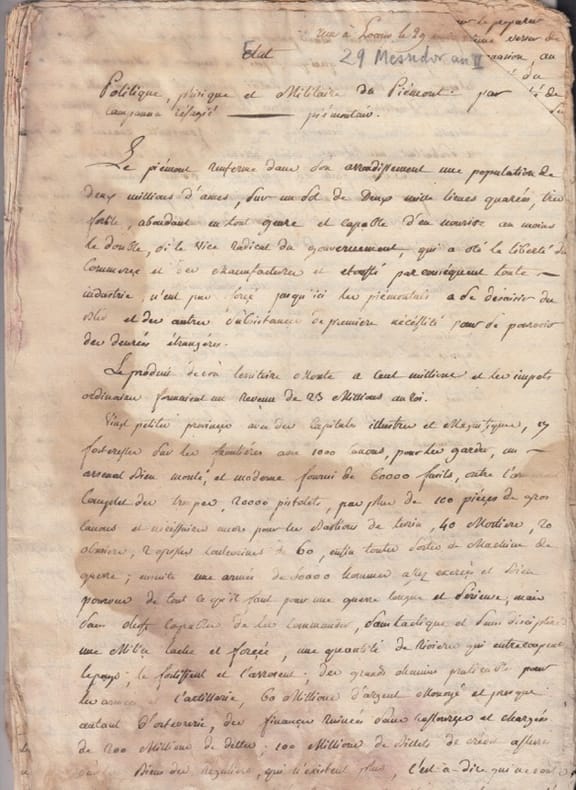 vue à Loano le 29
Etat 29 Messidor an II
Politique, phisique et Militaire du Piémont par
campanna réfugié piémontais.
Le piémont renferme dans son arrondissement une population de
deux millions d'ames, sur un sol de Deux mille lieues quarrées, tres
fertile, abondant en tout genre et capable d'en nourrir au moins
le double, si le vice radical du gouvernement, qui a oté la liberté du
Commerce et des manufactures et etouffé par conséquent toute
industrie, n'eut pas forcé jusqu'ici les piémontais a se désaisir du
bled et des autres subsistances de première nécéssité pour se pourvoir
des denrées étrangères.
Le produit de son territoire monte a cent millions et les impots
ordinaires formaient un revenu de 23 Millions au roi.
Vingt petites provinces avec des Capitales illustres et Magnifiques, 17
forteresses sur les frontières avec 1000 canons, pour les garder, un
arsenal bien monté, et moderne fourni de 60000 fusils, outre l'
Complet des troupes, 20000 pistolets, pas plus de 100 pièces de gros
canons et nécéssaires encore pour les Bastions de turin, 40 Mortiers, 20
obusiers, 2 couleuvrines de 60, enfin toutes sortes de Machines de
guerre; ensuite une armée de 50000 hommes assez exercés et bien
pourvue de tout ce qu'il faut pour une guerre longue et sérieuse; mais
sans chefs capables de les commander, sans tactique et sans discipline
une Milice lache et forcée, une quantité de rivieres qui entrecoupent
le pays, le fortifient et l'arrosent; des grands chemins praticables pour
les armées et l'artillerie, 60 Millions d'argent Monoyé et presque
autant d'orfevrerie, des finances ruinées sans ressources et chargées
de 200 Millions de dettes, 100 Millions de Billets de crédit assurés
sur les Biens des Reguliers, qui n'existent plus, c'est-à-dire qui ne sont